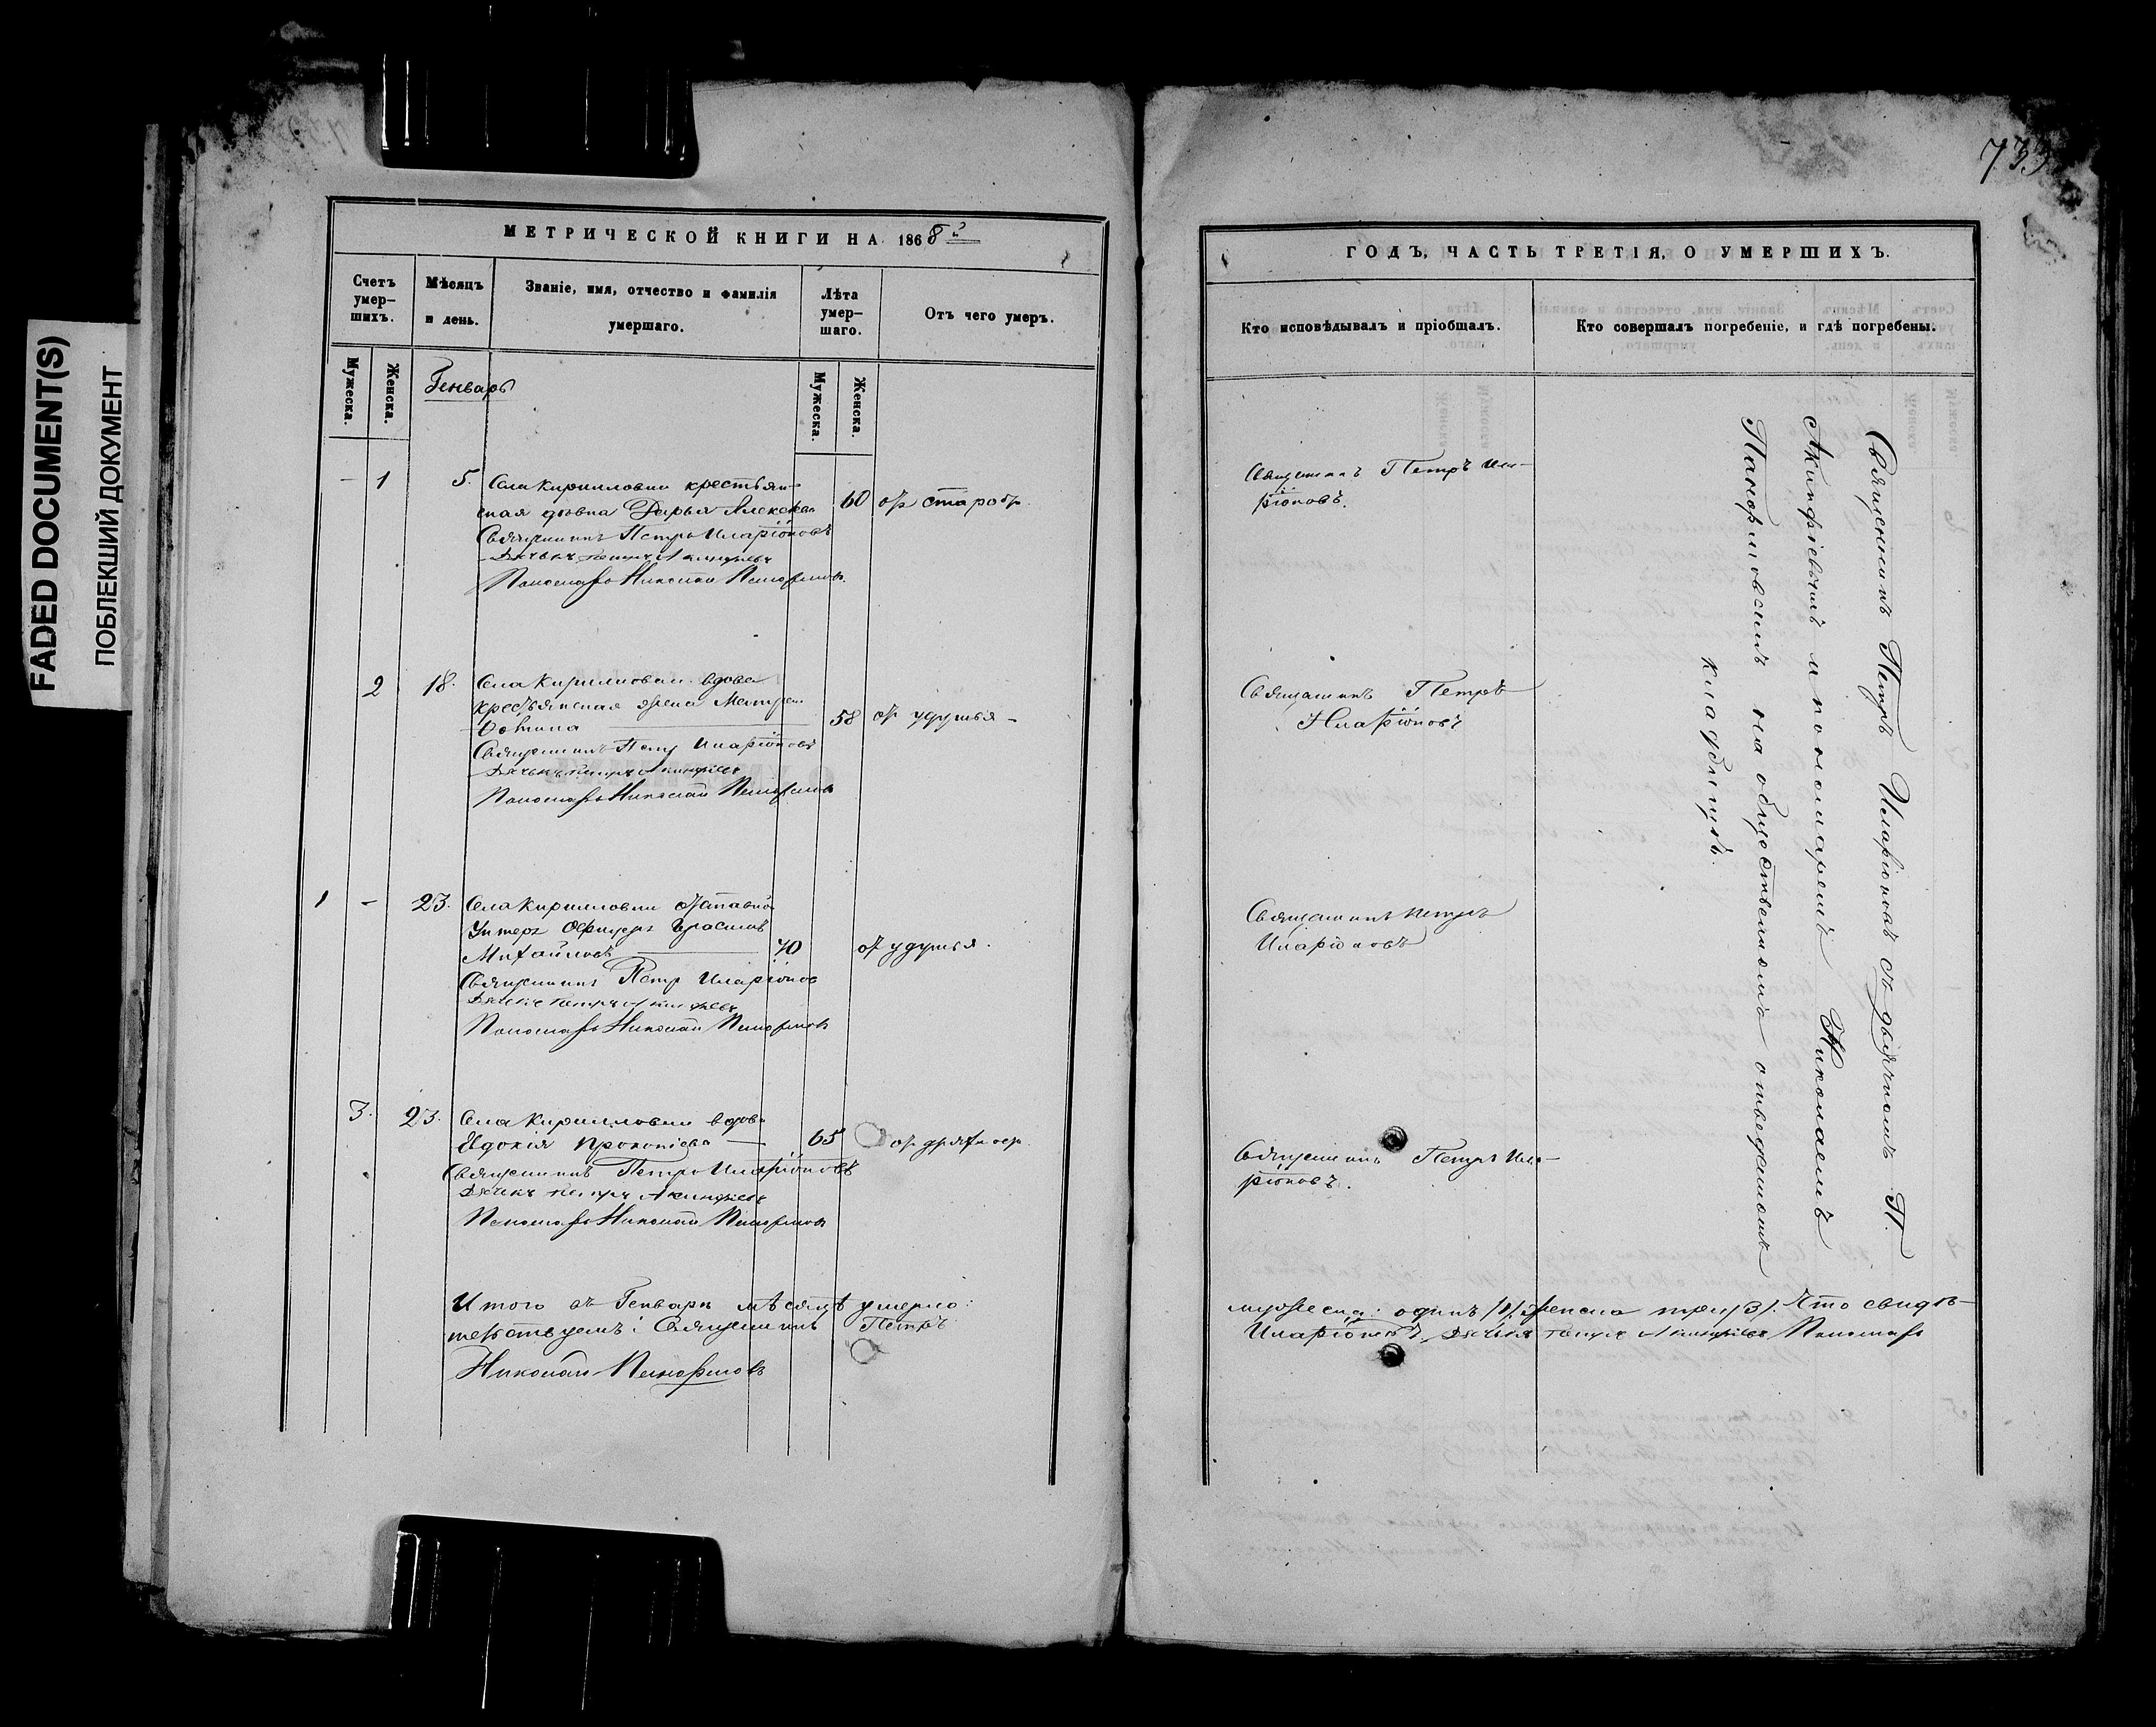 FADED DOCUMENT(S)
ПОБЛЕКШИЙ ДОКУМЕНТ
МЕТРИЧЕСКОЙ КНИГИ НА 1868й
Счетъ умер-шихъ.
Мужеска.
Женска.
Мѣсяцъ и день.
Званіе, имя, отчество и фамилія
умершаго.
Лѣта умер-шаго.
Мужеска.
Женска.
Отъ чего умеръ.
Генварь
- 1 5. Села Кирилловки крестьян-
ская Дарья Алексѣева 60 отъ старос.
Священникъ Петръ Иларіоновъ
Дьячекъ Петръ Акинфіевъ
Пономарь Николай
2 18. Села Кирилловки вдова
крестьянская жена Матрена
58 отъ удушья -
Священникъ Петръ Иларіоновъ
Дьячекъ Петръ Акинфіевъ
Пономарь Николай
1 - 23. Села Кирилловки отставной
Унтеръ Офицеръ Герасимъ
Михайловъ 70 отъ удушья.
Священникъ Петръ Иларіоновъ
Дьячекъ Петръ Акинфіевъ
Пономарь Николай
3. 23. Села Кирилловки вдова
Евдокія Прокопіева 65 отъ дряхлос.
Священникъ Петръ Иларіоновъ
Дьячекъ Петръ Акинфіевъ
Пономарь Николай
Итого въ Генварѣ мѣсяцѣ умерло:
тельствуемъ: Священникъ Петръ
Николай
733
ГОДЪ, ЧАСТЬ ТРЕТІЯ, О УМЕРШИХЪ.
Кто исповѣдывалъ и пріобщалъ.
Кто совершалъ погребеніе, и гдѣ погребены.
Священникъ Петръ Ила-
ріоновъ.
Священникъ Петръ
Иларіоновъ
Священникъ Петръ
Иларіоновъ
Священникъ Петръ Ила-
ріоновъ.
Священникъ Петръ Иларіоновъ съ дьячкомъ П.
Акинфіевымъ и пономаремъ Николаемъ
на общественномъ отведенномъ
кладбищѣ.
мужеска: одинъ /1/ женска три /3/. Что свидѣ-
Иларіоновъ, Дьячекъ Петръ Акинфіевъ Пономарь